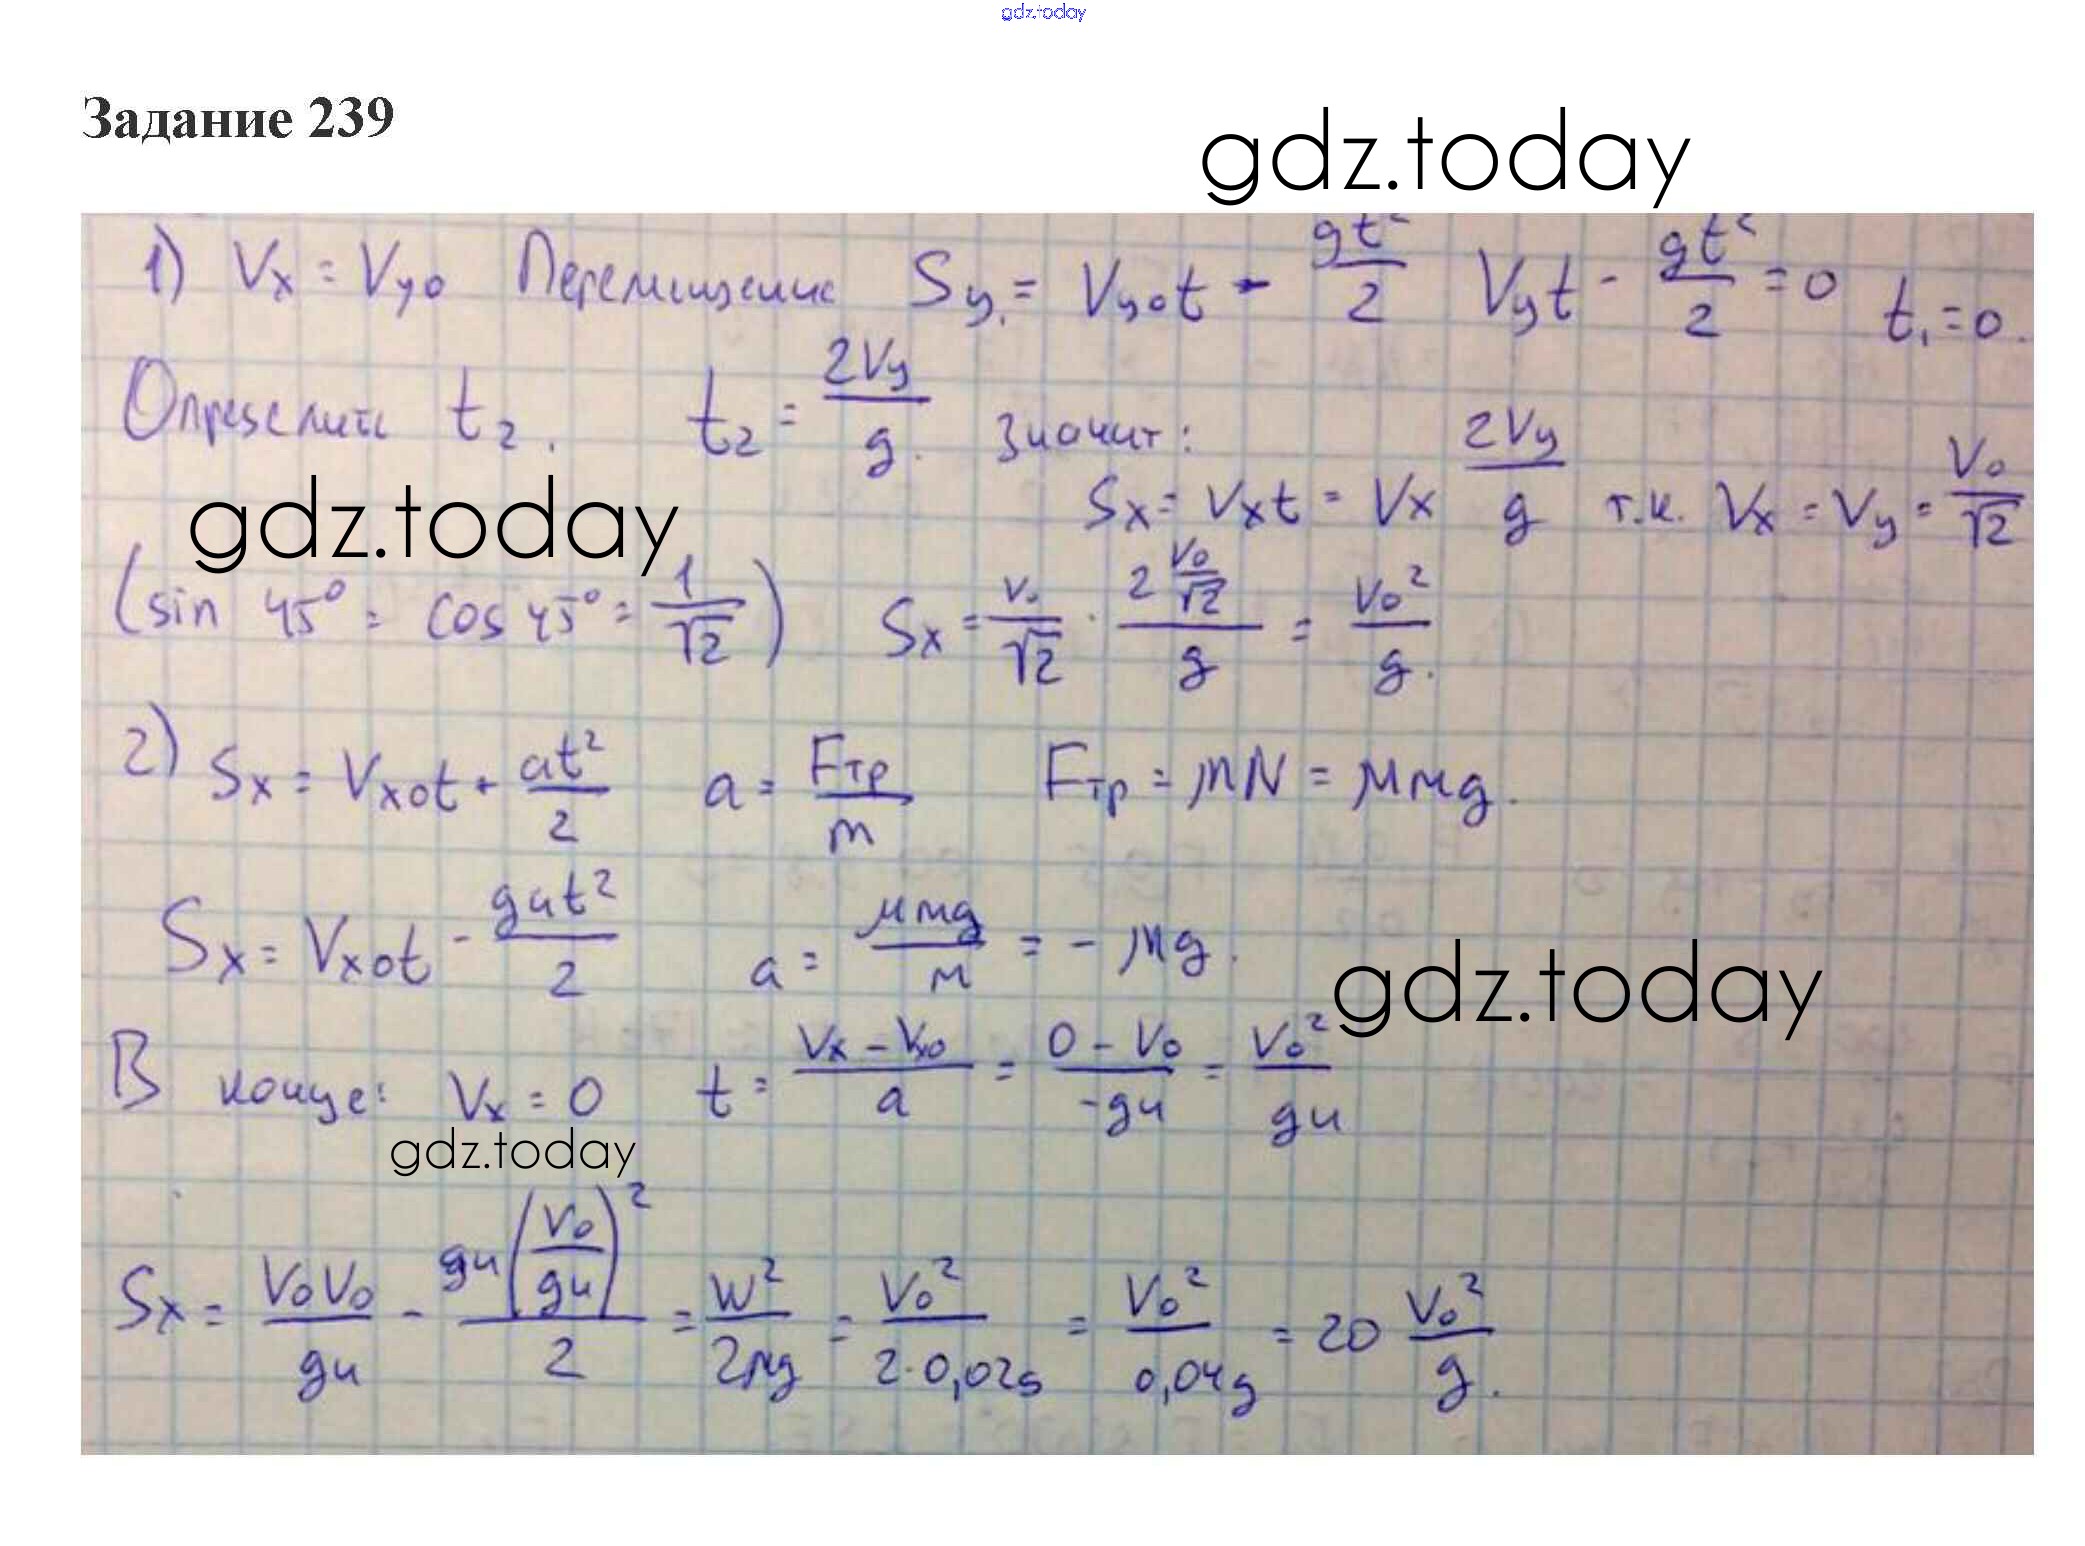 gdz.today
Задание 239
gdz.today
1) Vx = Vy0 Перемещение Sy = Vy0t - gt²/2 Vyt - gt²/2 = 0 t₁ = 0.
Определить t₂. t₂ = 2Vy/g. Значит:
Sx = Vxt = Vx 2Vy/g т.к. Vx = Vy = V₀/√2
gdz.today
(sin 45° = cos 45° = 1/√2) Sx = V₀/√2 · (2 V₀/√2)/g = V₀²/g.
2) Sx = Vx0t + at²/2 a = Fтр/m Fтр = μN = μmg.
Sx = Vx0t - gμt²/2 a = μmg/m = - μg.
gdz.today
В конце: Vx = 0 t = (Vx - Vx0)/a = (0 - V₀)/(-gμ) = V₀²/gμ
gdz.today
Sx = V₀V₀/gμ - gμ(V₀/gμ)²/2 = V₀²/2μg = V₀²/2·0,02g = V₀²/0,04g = 20 V₀²/g.